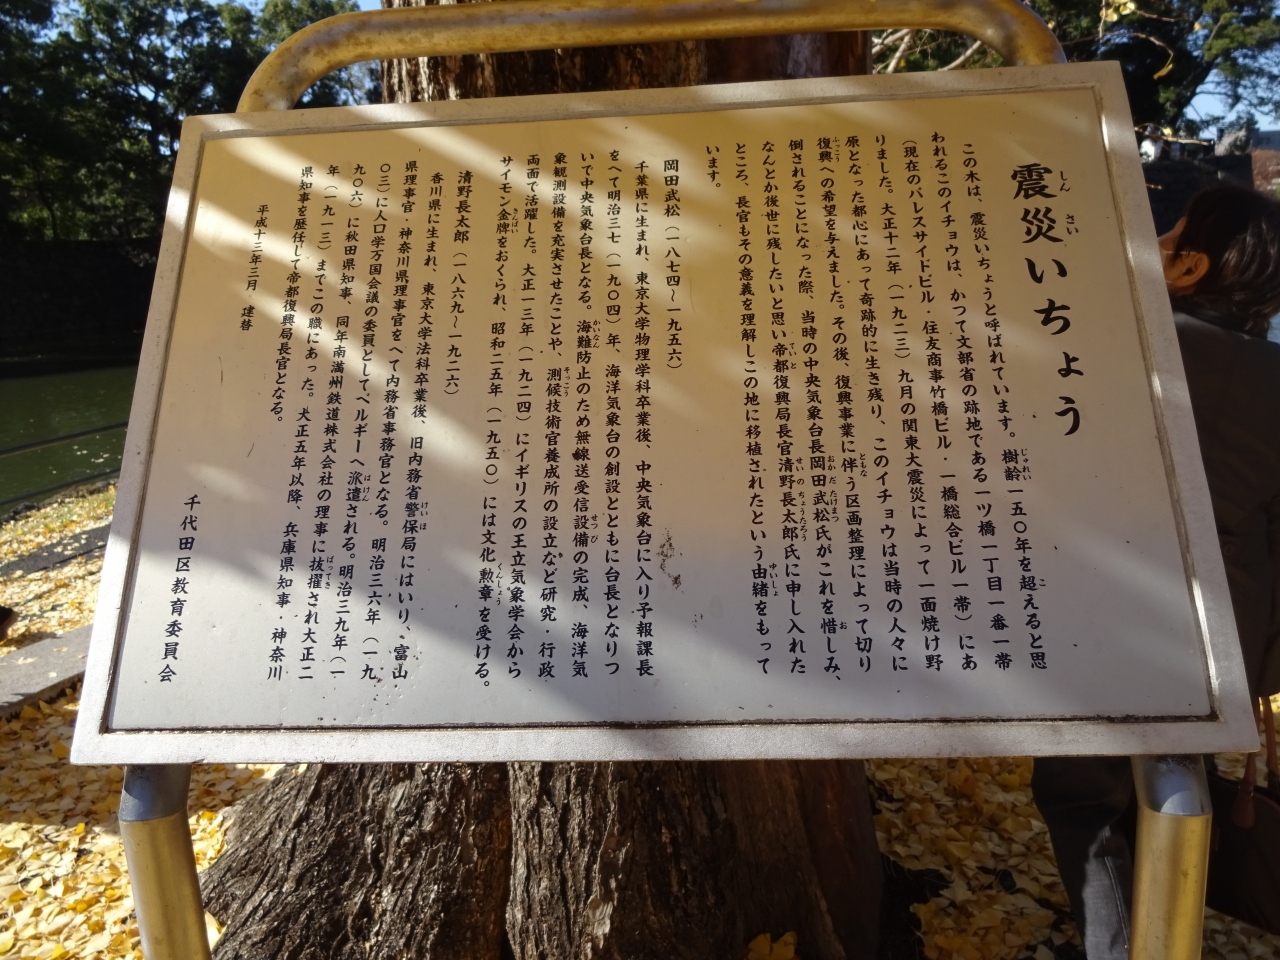 震災いちょう
この木は、震災いちょうと呼ばれています。樹齢一五〇年を超えると思
われるこのイチョウは、かつて文部省の跡地である一ツ橋一丁目一番一帯
（現在のパレスサイドビル・住友商事竹橋ビル・一橋総合ビル一帯）にあ
りました。大正十二年（一九二三）九月の関東大震災によって一面焼け野
原となった都心にあって奇跡的に生き残り、このイチョウは当時の人々に
復興への希望を与えました。その後、復興事業に伴う区画整理によって切り
倒されることになった際、当時の中央気象台長岡田武松氏がこれを惜しみ、
なんとか後世に残したいと思い帝都復興局長官清野長太郎氏に申し入れた
ところ、長官もその意義を理解しこの地に移植されたという由緒をもって
います。
岡田武松（一八七四〜一九五六）
千葉県に生まれ、東京大学物理学科卒業後、中央気象台に入り予報課長
をへて明治三七（一九〇四）年、海洋気象台の創設とともに台長となりつ
いで中央気象台長となる。海難防止のため無線送受信設備の完成、海洋気
象観測設備を充実させたことや、測候技術官養成所の設立など研究・行政
両面で活躍した。大正一三年（一九二四）にイギリスの王立気象学会から
サイモン金牌をおくられ、昭和二五年（一九五〇）には文化勲章を受ける。
清野長太郎（一八六九〜一九二六）
香川県に生まれ、東京大学法科卒業後、旧内務省警保局にはいり、富山
県理事官・神奈川県理事官をへて内務省事務官となる。明治三六年（一九
〇三）に人口学万国会議の委員としてベルギーへ派遣される。明治三九年（一
九〇六）に秋田県知事、同年南満州鉄道株式会社の理事に抜擢され大正二
年（一九一三）までこの職にあった。大正五年以降、兵庫県知事・神奈川
県知事を歴任して帝都復興局長官となる。
平成十三年三月　建替
千代田区教育委員会